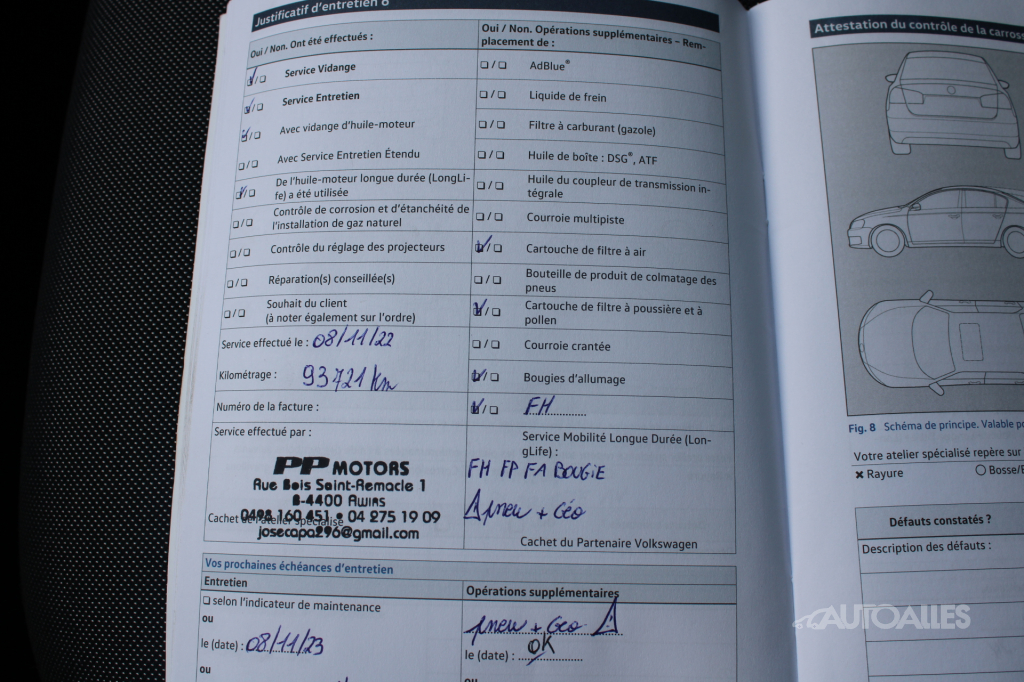 Justificatif d'entretien 6
Oui / Non. Ont été effectués :
❏/❏ Service Vidange
❏/❏ Service Entretien
❏/❏ Avec vidange d'huile-moteur
❏/❏ Avec Service Entretien Étendu
❏/❏ De l'huile-moteur longue durée (LongLi-
fe) a été utilisée
❏/❏ Contrôle de corrosion et d'étanchéité de
l'installation de gaz naturel
❏/❏ Contrôle du réglage des projecteurs
❏/❏ Réparation(s) conseillée(s)
❏/❏ Souhait du client
(à noter également sur l'ordre)
Service effectué le : 08/11/22
Kilométrage : 93721 km
Numéro de la facture :
Service effectué par :
PP MOTORS
Rue Bois Saint-Remacle 1
B-4400 Awirs
0498 160 451 • 04 275 19 09
Cachet de l'atelier spécialisé
josecapa296@gmail.com
Oui / Non. Opérations supplémentaires – Rem-
placement de :
❏/❏ AdBlue®
❏/❏ Liquide de frein
❏/❏ Filtre à carburant (gazole)
❏/❏ Huile de boîte : DSG®, ATF
❏/❏ Huile du coupleur de transmission in-
tégrale
❏/❏ Courroie multipiste
❏/❏ Cartouche de filtre à air
❏/❏ Bouteille de produit de colmatage des
pneus
❏/❏ Cartouche de filtre à poussière et à
pollen
❏/❏ Courroie crantée
❏/❏ Bougies d'allumage
❏/❏ FH
Service Mobilité Longue Durée (Lon-
gLife) :
FH FP FA BOUGIE
pneu + Géo
Cachet du Partenaire Volkswagen
Vos prochaines échéances d'entretien
Entretien
❏ selon l'indicateur de maintenance
ou
le (date) : 08/11/23
ou
Opérations supplémentaires
pneu + Géo
le (date) : OK
ou
Attestation du contrôle de la carross
Fig. 8 Schéma de principe. Valable po
Votre atelier spécialisé repère sur
✖ Rayure ○ Bosse/E
Défauts constatés ?
Description des défauts :
AUTOALLES